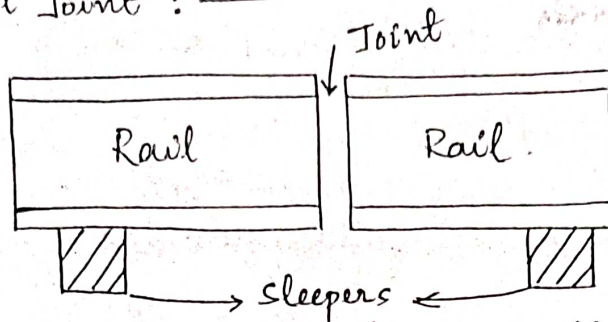 Joint :
Joint
Rail Rail.
Sleepers